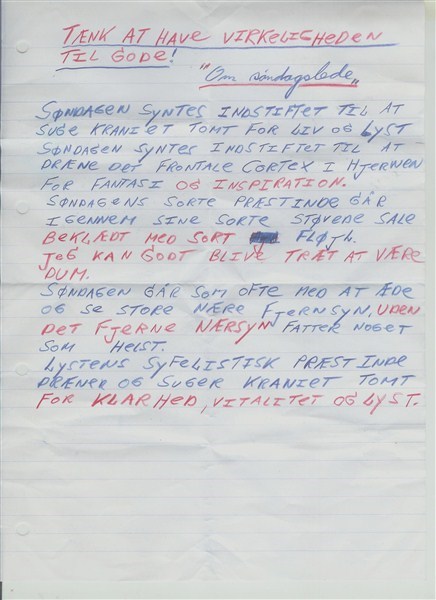 TÆNK AT HAVE VIRKELIGHEDEN
TIL GODE!
"Om søndagslede"
SØNDAGEN SYNTES INDSTIFTET TIL AT
SUGE KRANIET TOMT FOR LIV OG LYST
SØNDAGEN SYNTES INDSTIFTET TIL AT
DRÆNE DET FRONTALE CORTEX I HJERNEN
FOR FANTASI OG INSPIRATION.
SØNDAGENS SORTE PRÆSTINDE GÅR
IGENNEM SINE SORTE STØVEDE SALE
BEKLÆDT MED SORT FLØJL.
JEG KAN GODT BLIVE TRÆT AT VÆRE
DUM.
SØNDAGEN GÅR SOM OFTE MED AT ÆDE
OG SE STORE NÆRE FJERNSYN, UDEN
DET FJERNE NÆRSYN FATTER NOGET
SOM HELST.
LYSTENS SYFELISTISK PRÆSTINDE
DRÆNER OG SUGER KRANIET TOMT
FOR KLARHED, VITALITET OG LYST.